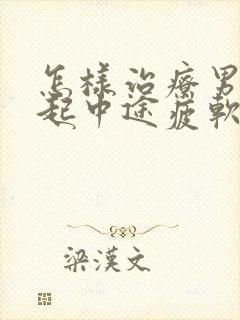 怎樣治療男
起中途疲軟
梁漢文